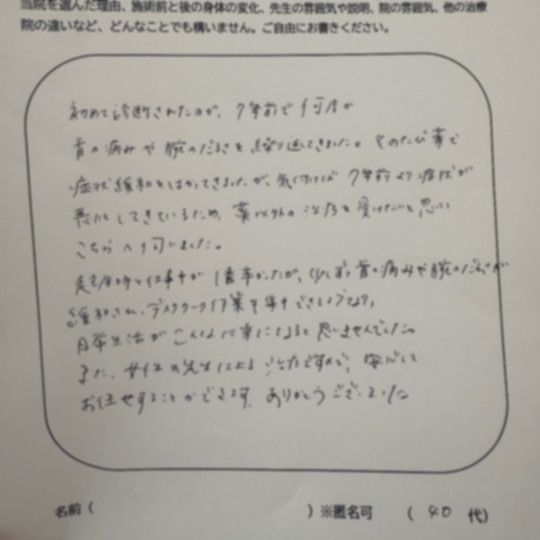 当院を選んだ理由、施術前と後の身体の変化、先生の雰囲気や説明、院の雰囲気、他の治療
院の違いなど、どんなことでも構いません。ご自由にお書きください。
初めて診断されたのが、7年前で
首の痛みや腕のだるさを繰り返してきました。そのたび薬で
症状緩和をはかってきましたが、気付けば7年前より症状が
悪化してきているため、薬以外の治療を受けたいと思い
こちらへ伺いました。
起床時と仕事中が1番辛かったが、少しずつ首の痛みや腕のだるさが
緩和され、デスクワーク作業も集中できるようになり、
日常生活がこんなに楽になると思いませんでした。
また、女性の先生による治療ですので、安心して
お任せすることができます。ありがとうございました
名前( )※匿名可 (40代)